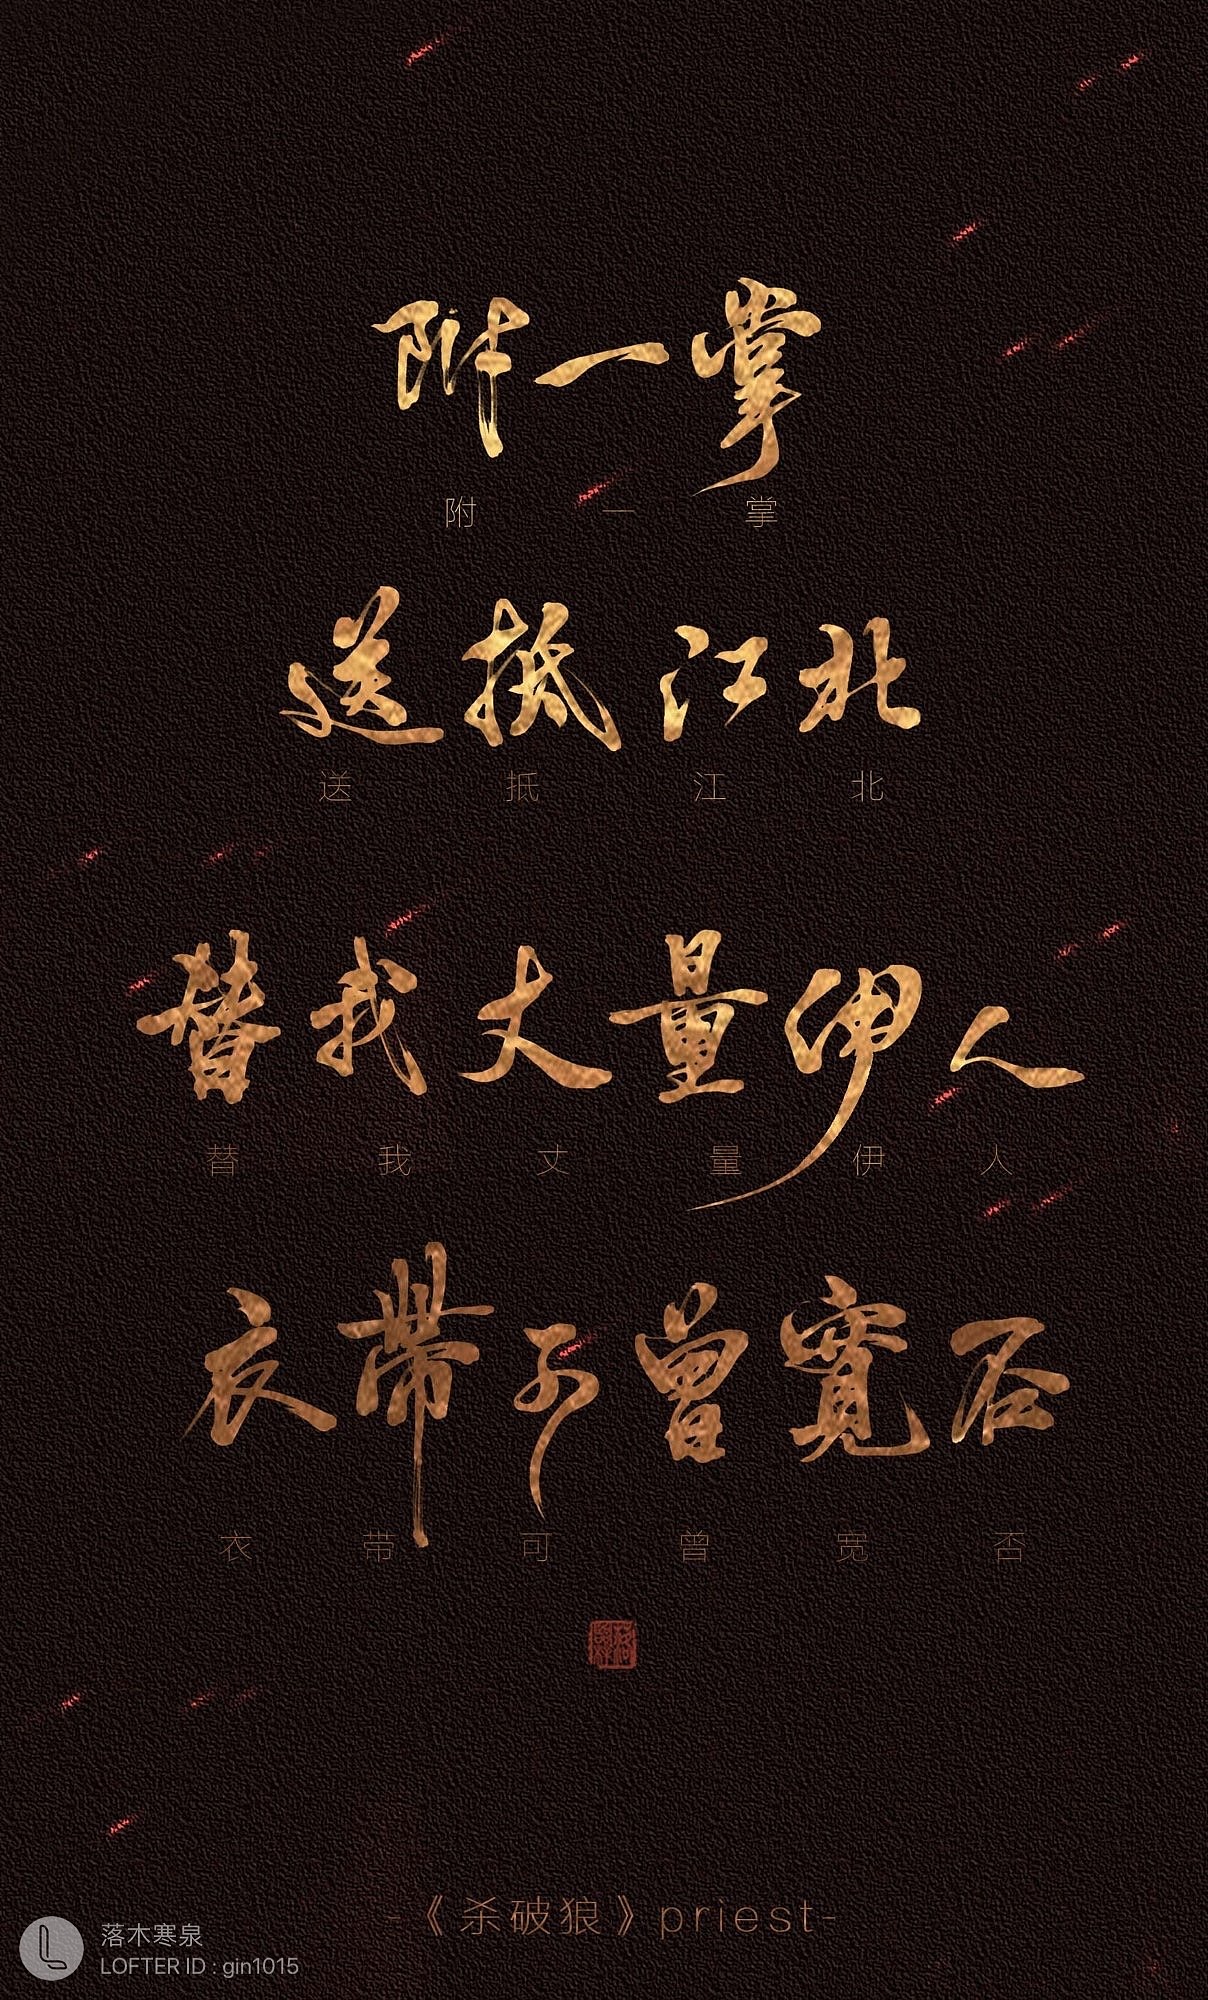 附一掌
附一掌
送抵江北
送抵江北
替我丈量伊人
替我丈量伊人
衣帶可曾寬否
衣带可曾宽否
-《杀破狼》priest-
落木寒泉
LOFTER ID : gin1015